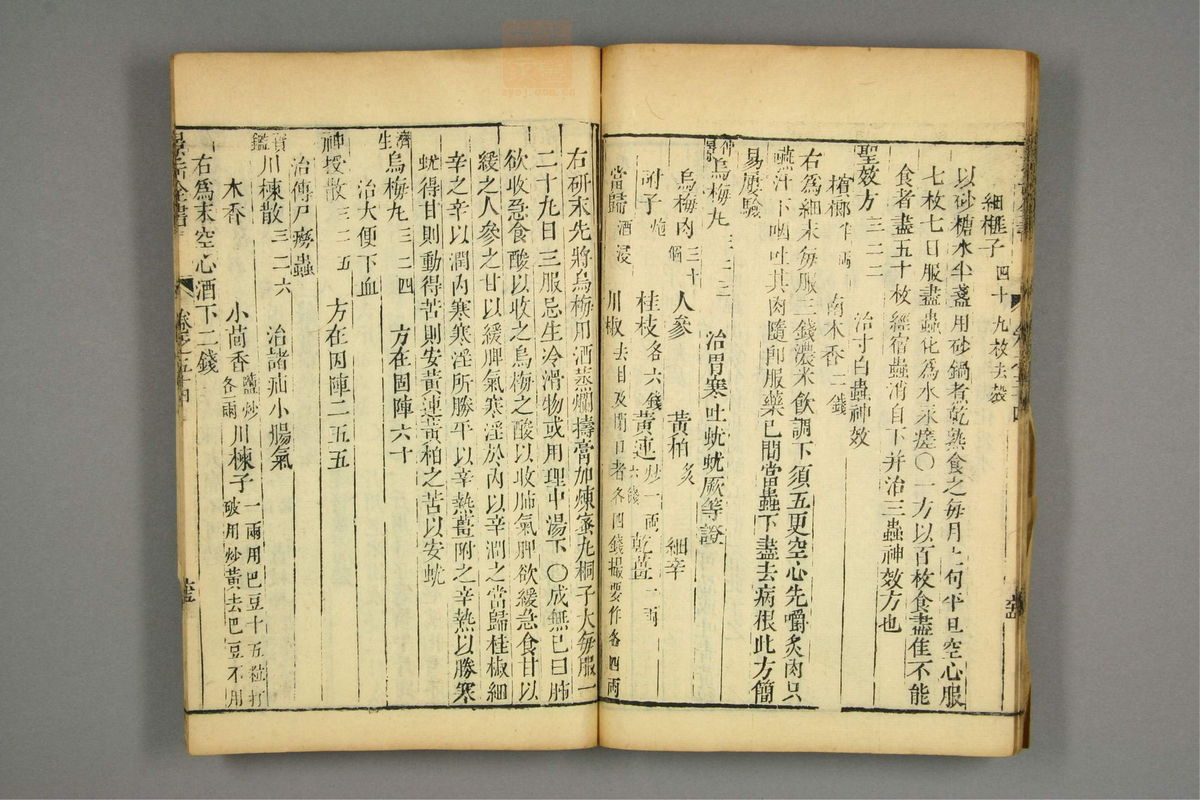 細榧子 四十九枚去殼
以砂糖水半盞用砂鍋者乾熟食之每月上旬平旦空心服
七枚七日服盡蟲化為水永瘥○一方以百枚食盡佳不能
食者盡五十枚經宿蟲消自下并治三蟲神效方也
聖效方 三二二 治寸白蟲神效
檳榔 南木香 二錢
右為細末每服三錢濃米飲調下須五更空心先嚼炙肉只
嚥汁下咽吐其肉隨即服藥巳間當蟲下盡去病根此方簡
易屢驗
仲景烏梅丸 三二三 治胃寒吐蚘蚘厥等證
烏梅肉 三十個 人參 黃柏 炙 細辛
附子 炮 桂枝 各六錢 黃連 炒一兩六錢 乾薑 一兩
當歸 酒浸 川椒 去目及閉口者各四錢撮要作各四兩
右研末先將烏梅用酒蒸爛擣膏加煉蜜丸桐子大每服一
二十丸日三服忌生冷滑物或用理中湯下○成無已曰肺
欲收急食酸以收之烏梅之酸以收肺氣脾欲緩急食甘以
緩之人參之甘以緩脾氣寒淫於內以辛潤之當歸桂椒細
辛之辛以潤內寒寒淫所勝平以辛熱薑附之辛熱以勝寒
蚘得甘則動得苦則安黃連黃柏之苦以安蚘
濟生烏梅丸 三二四 方在固陣六十
治大便下血
神授散 三二五 方在因陣二五五
治傳尸癆蟲
寶鑑川楝散 三二六 治諸疝小腸氣
木香 小茴香 鹽炒各一兩 川楝子 一兩用巴豆十五粒打破用炒黃去巴豆不用
右為末空心酒下二錢